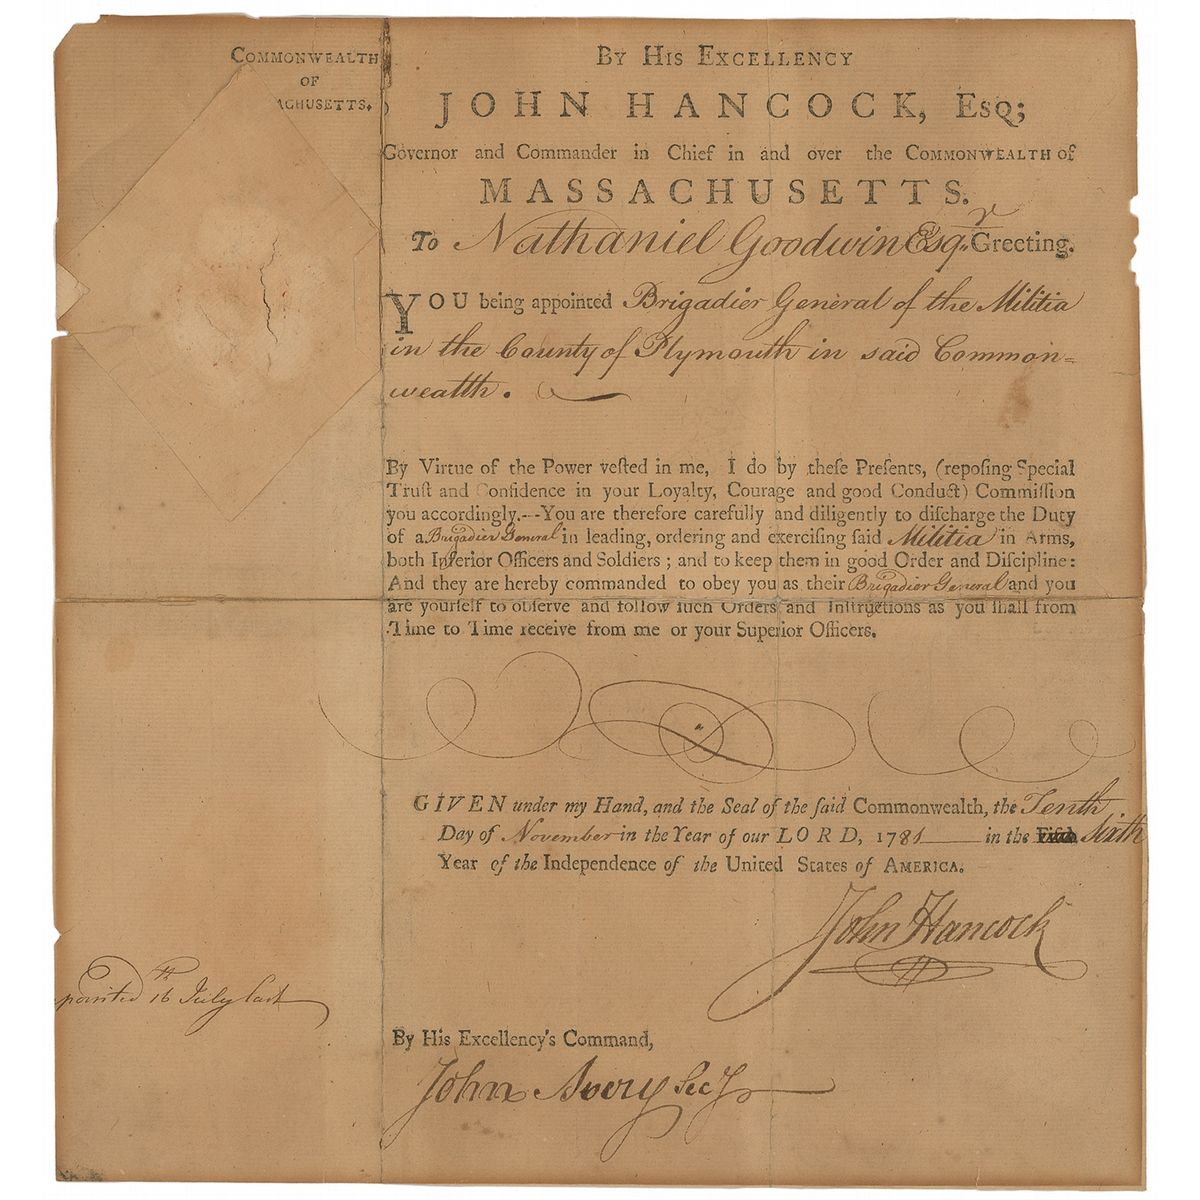 COMMONWEALTH
OF
ACHUSETTS.
BY HIS EXCELLENCY
JOHN HANCOCK, Esq;
Governor and Commander in Chief in and over the COMMONWEALTH of
MASSACHUSETTS.
To Nathaniel Goodwin Esqr. Greeting.
YOU being appointed Brigadier General of the Militia
in the County of Plymouth in said Common=
wealth.
By Virtue of the Power veſted in me, I do by theſe Preſents, (repoſing Special
Truſt and Confidence in your Loyalty, Courage and good Conduct) Commiſſion
you accordingly.--You are therefore carefully and diligently to diſcharge the Duty
of a Brigadier General in leading, ordering and exerciſing ſaid Militia in Arms,
both Inferior Officers and Soldiers; and to keep them in good Order and Diſcipline:
And they are hereby commanded to obey you as their Brigadier General and you
are yourſelf to obſerve and follow ſuch Orders and Inſtructions as you ſhall from
Time to Time receive from me or your Superior Officers.
GIVEN under my Hand, and the Seal of the ſaid Commonwealth, the Tenth
Day of November in the Year of our LORD, 1781 in the Fifth Sixth
Year of the Independence of the United States of AMERICA.
John Hancock
pointed 16th July last
By His Excellency's Command,
John Avery Secy